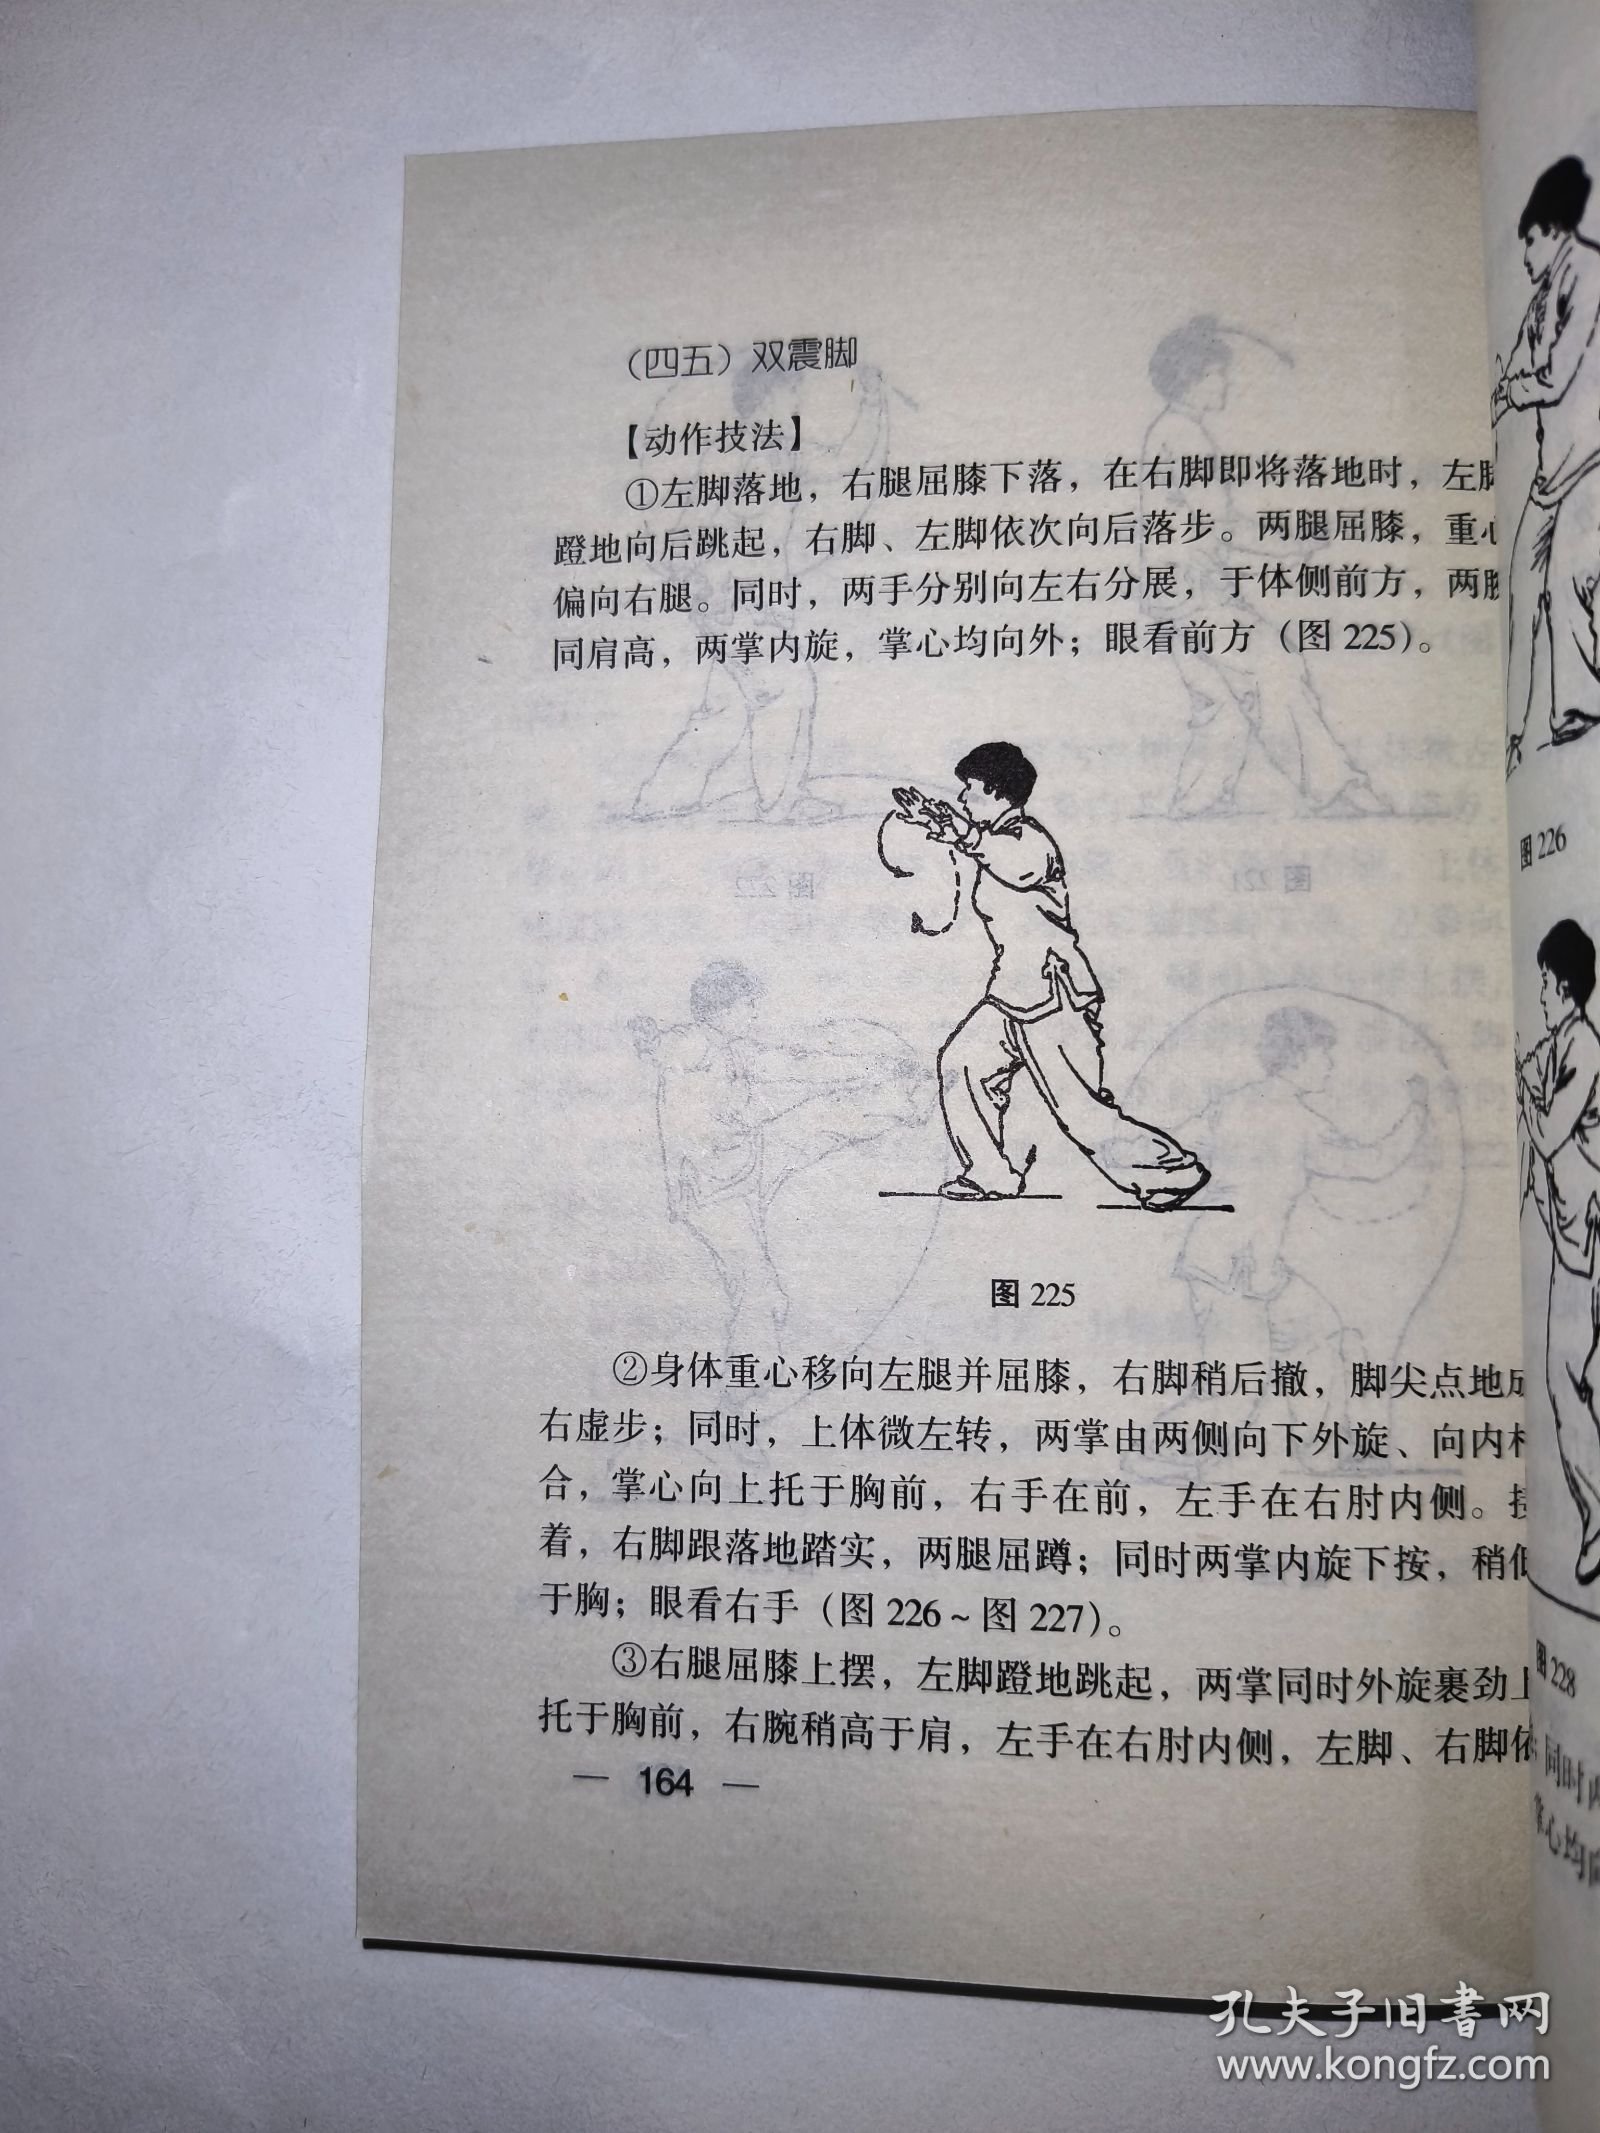 （四五）双震脚
【动作技法】
①左脚落地，右腿屈膝下落，在右脚即将落地时，左脚
蹬地向后跳起，右脚、左脚依次向后落步。两腿屈膝，重心
偏向右腿。同时，两手分别向左右分展，于体侧前方，两腕
同肩高，两掌内旋，掌心均向外；眼看前方（图 225）。
图 225
②身体重心移向左腿并屈膝，右脚稍后撤，脚尖点地成
右虚步；同时，上体微左转，两掌由两侧向下外旋、向内
合，掌心向上托于胸前，右手在前，左手在右肘内侧。接
着，右脚跟落地踏实，两腿屈蹲；同时两掌内旋下按，稍低
于胸；眼看右手（图 226～图 227）。
③右腿屈膝上摆，左脚蹬地跳起，两掌同时外旋裹劲上
托于胸前，右腕稍高于肩，左手在右肘内侧，左脚、右脚依
— 164 —
图 226
图 228
同时两
掌心均向
孔夫子旧书网
www.kongfz.com